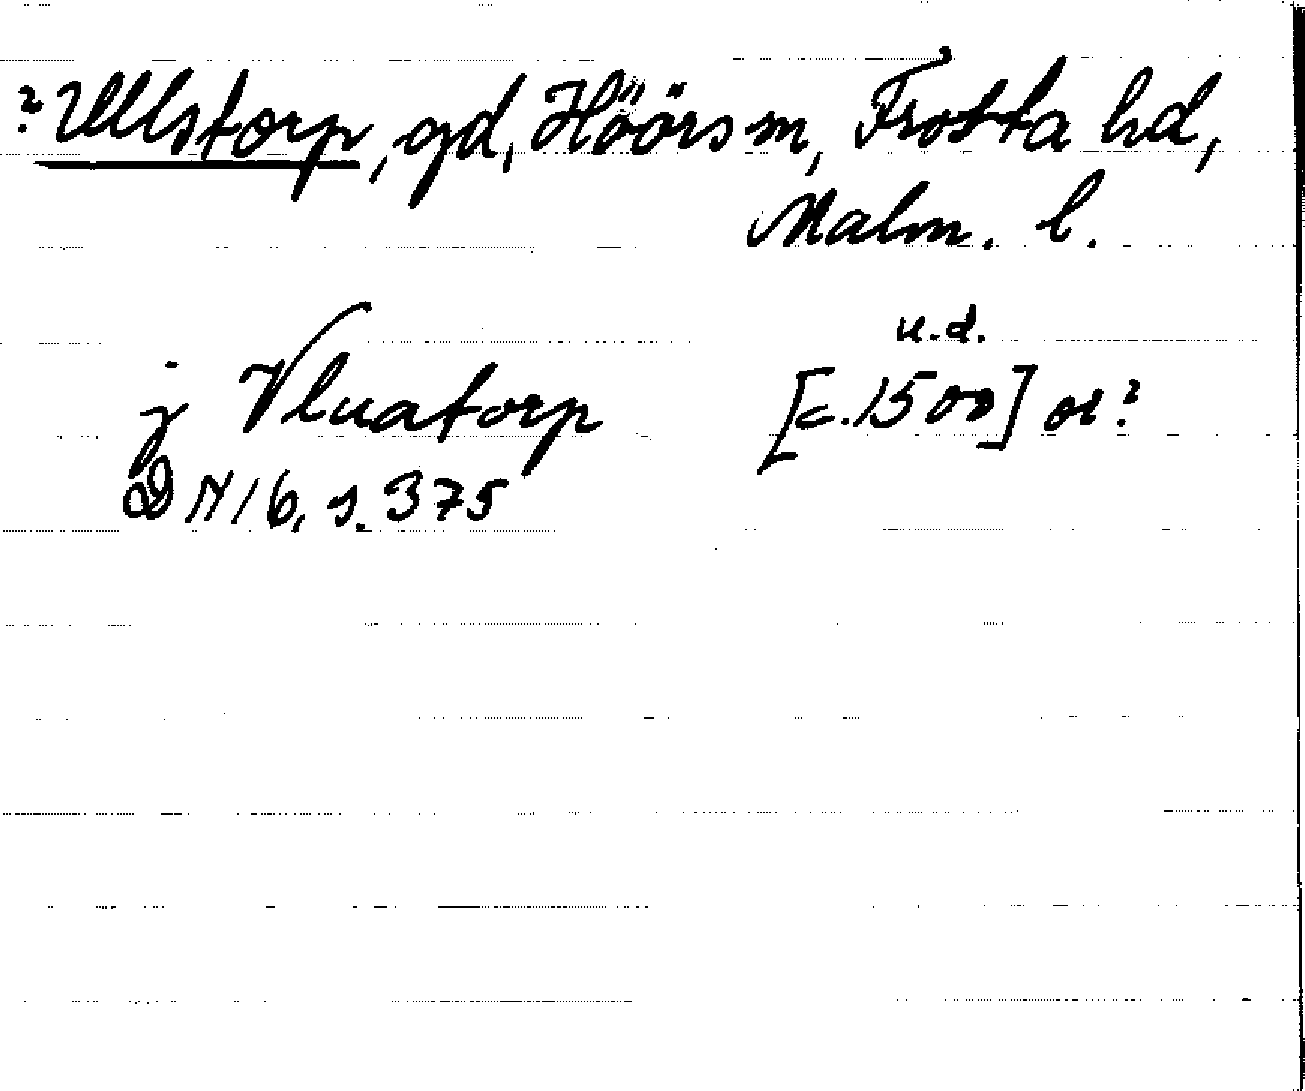 ? Ullstorp, gd, Höörs sn, Frosta hd,
Malm. l.
u.d.
j Vluatorp [c. 1500] or?
DN 16, s. 375